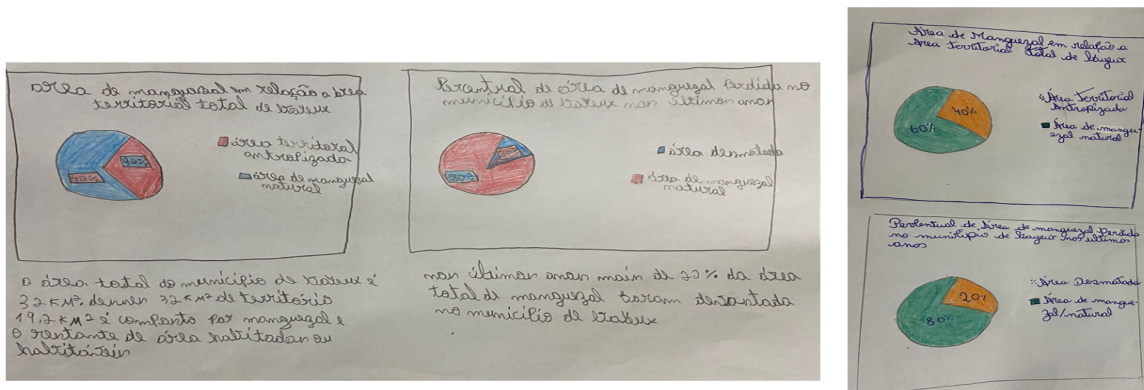 area de manguezal em relação a área
territorial total de
área territoral
antropizada
área de manguezal
natural
60%
a área total do município de é
32KM² desses 32KM² de território
19,2KM² é composto por manguezal e
o restante de área habitadas ou
habitáveis
de área de manguezal Perdida no
município de nos últimos anos
área desmatada
área de manguezal
natural
80%
nos últimos anos mais de 20% da área
total de manguezal foram
no município de
Área de Manguezal em relação a
Área territorial total de
40%
60%
Área territorial
Antropizada
Área de mangue-
zal natural
Percentual de Área de manguezal Perdido
no município de nos ultimos
anos
20%
80%
Área Desmatada
Área de mangue-
zal/natural